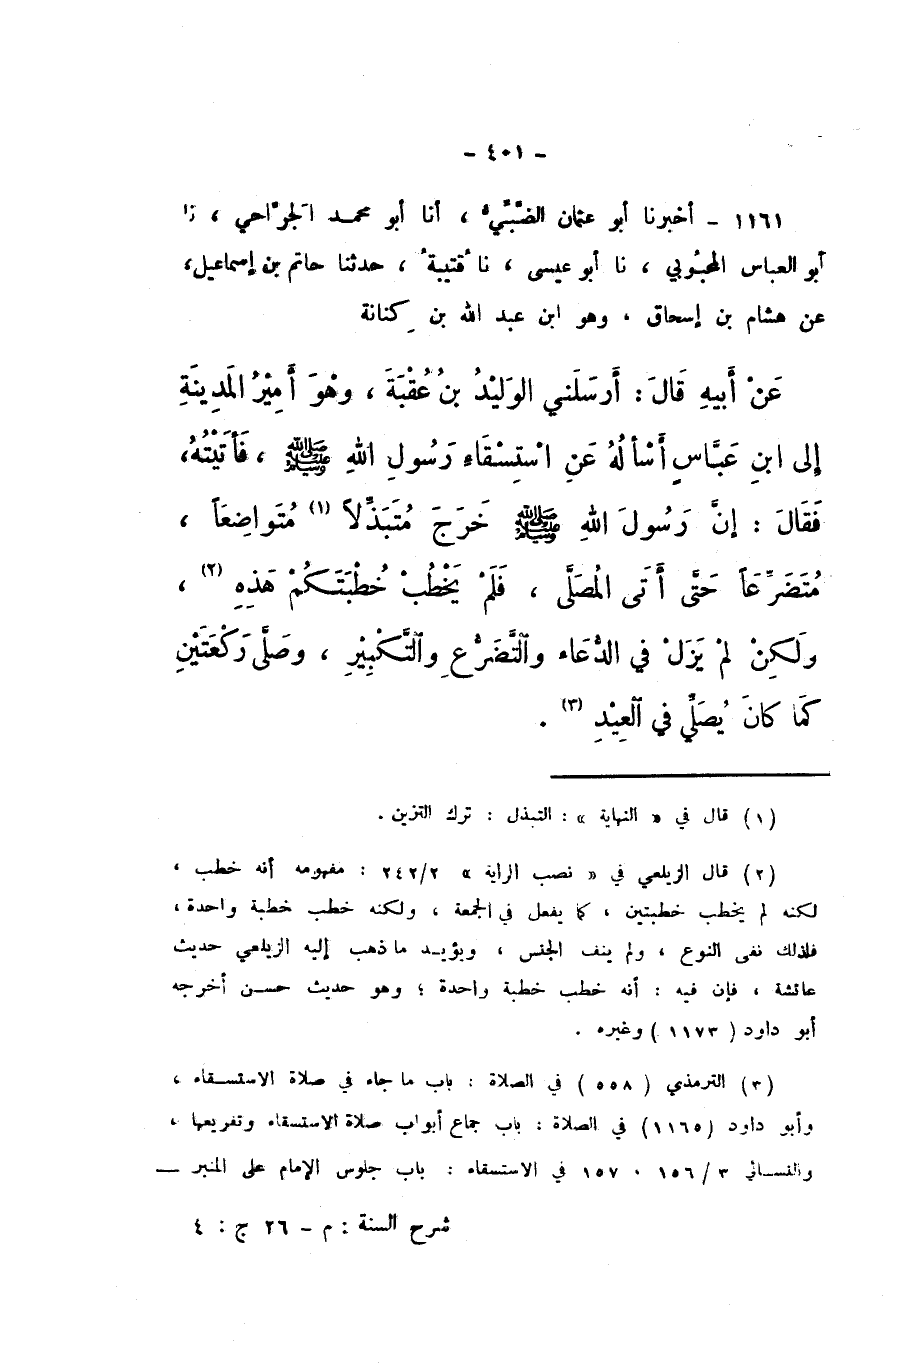 - ٤٠١ -
١١٦١ - أخبرنا أبو عثمان الضبِّيُّ ، أنا أبو محمد الجرّاحي ، نا
أبو العباس المحبُوبي ، نا أبو عيسى ، نا قُتيبةُ ، حدثنا حاتم بن إسماعيل،
عن هشام بن إسحاق ، وهو ابن عبد الله بن كِنانة
عَنْ أَبيهِ قَالَ : أَرسَلَني الوَليْدُ بنُ عُقْبَةَ ، وهْوَ أَمِيْرُ المَدِينَةِ
إلى ابنِ عَبَّاسٍ أَسْأَلُهُ عَنِ اسْتِسْقَاءِ رَسُولِ اللهِ ﷺ ، فَأَتَيْتُهُ،
فَقَالَ : إنَّ رَسُولَ اللهِ ﷺ خَرَجَ مُتَبَذِّلاً (١) مُتَواضِعَاً ،
مُتَضَرِّعَاً حَتَّى أَتَى المُصَلَّى ، فَلَمْ يَخْطُبْ خُطْبَتَكُمْ هَذِهِ (٢) ،
وَلَكِنْ لمْ يَزَلْ في الدُّعَاء والتَّضَرُّعِ والتَّكْبِيْرِ ، وصَلَّى رَكْعَتَيْنِ
كَمَا كانَ يُصَلِّي في العِيْدِ (٣) .
(١) قال في « النهاية » : التبذل : ترك التزين .
(٢) قال الزيلعي في « نصب الراية » ٢٤٢/٢ : مفهومه أنه خطب ،
لكنه لم يخطب خطبتين ، كما يفعل في الجمعة ، ولكنه خطب خطبة واحدة ،
فلذلك نفى النوع ، ولم ينف الجنس ، ويؤيد ما ذهب إليه الزيلعي حديث
عائشة ، فإن فيه : أنه خطب خطبة واحدة ؛ وهو حديث حسن أخرجه
أبو داود ( ١١٧٣ ) وغيره .
(٣) الترمذي ( ٥٥٨ ) في الصلاة : باب ما جاء في صلاة الاستسقاء ،
وأبو داود (١١٦٥) في الصلاة : باب جماع أبواب صلاة الاستسقاء وتفريعها ،
والنسائي ٣ / ١٥٦ ، ١٥٧ في الاستسقاء : باب جلوس الإمام على المنبر —
شرح السنة : م - ٢٦ ج : ٤